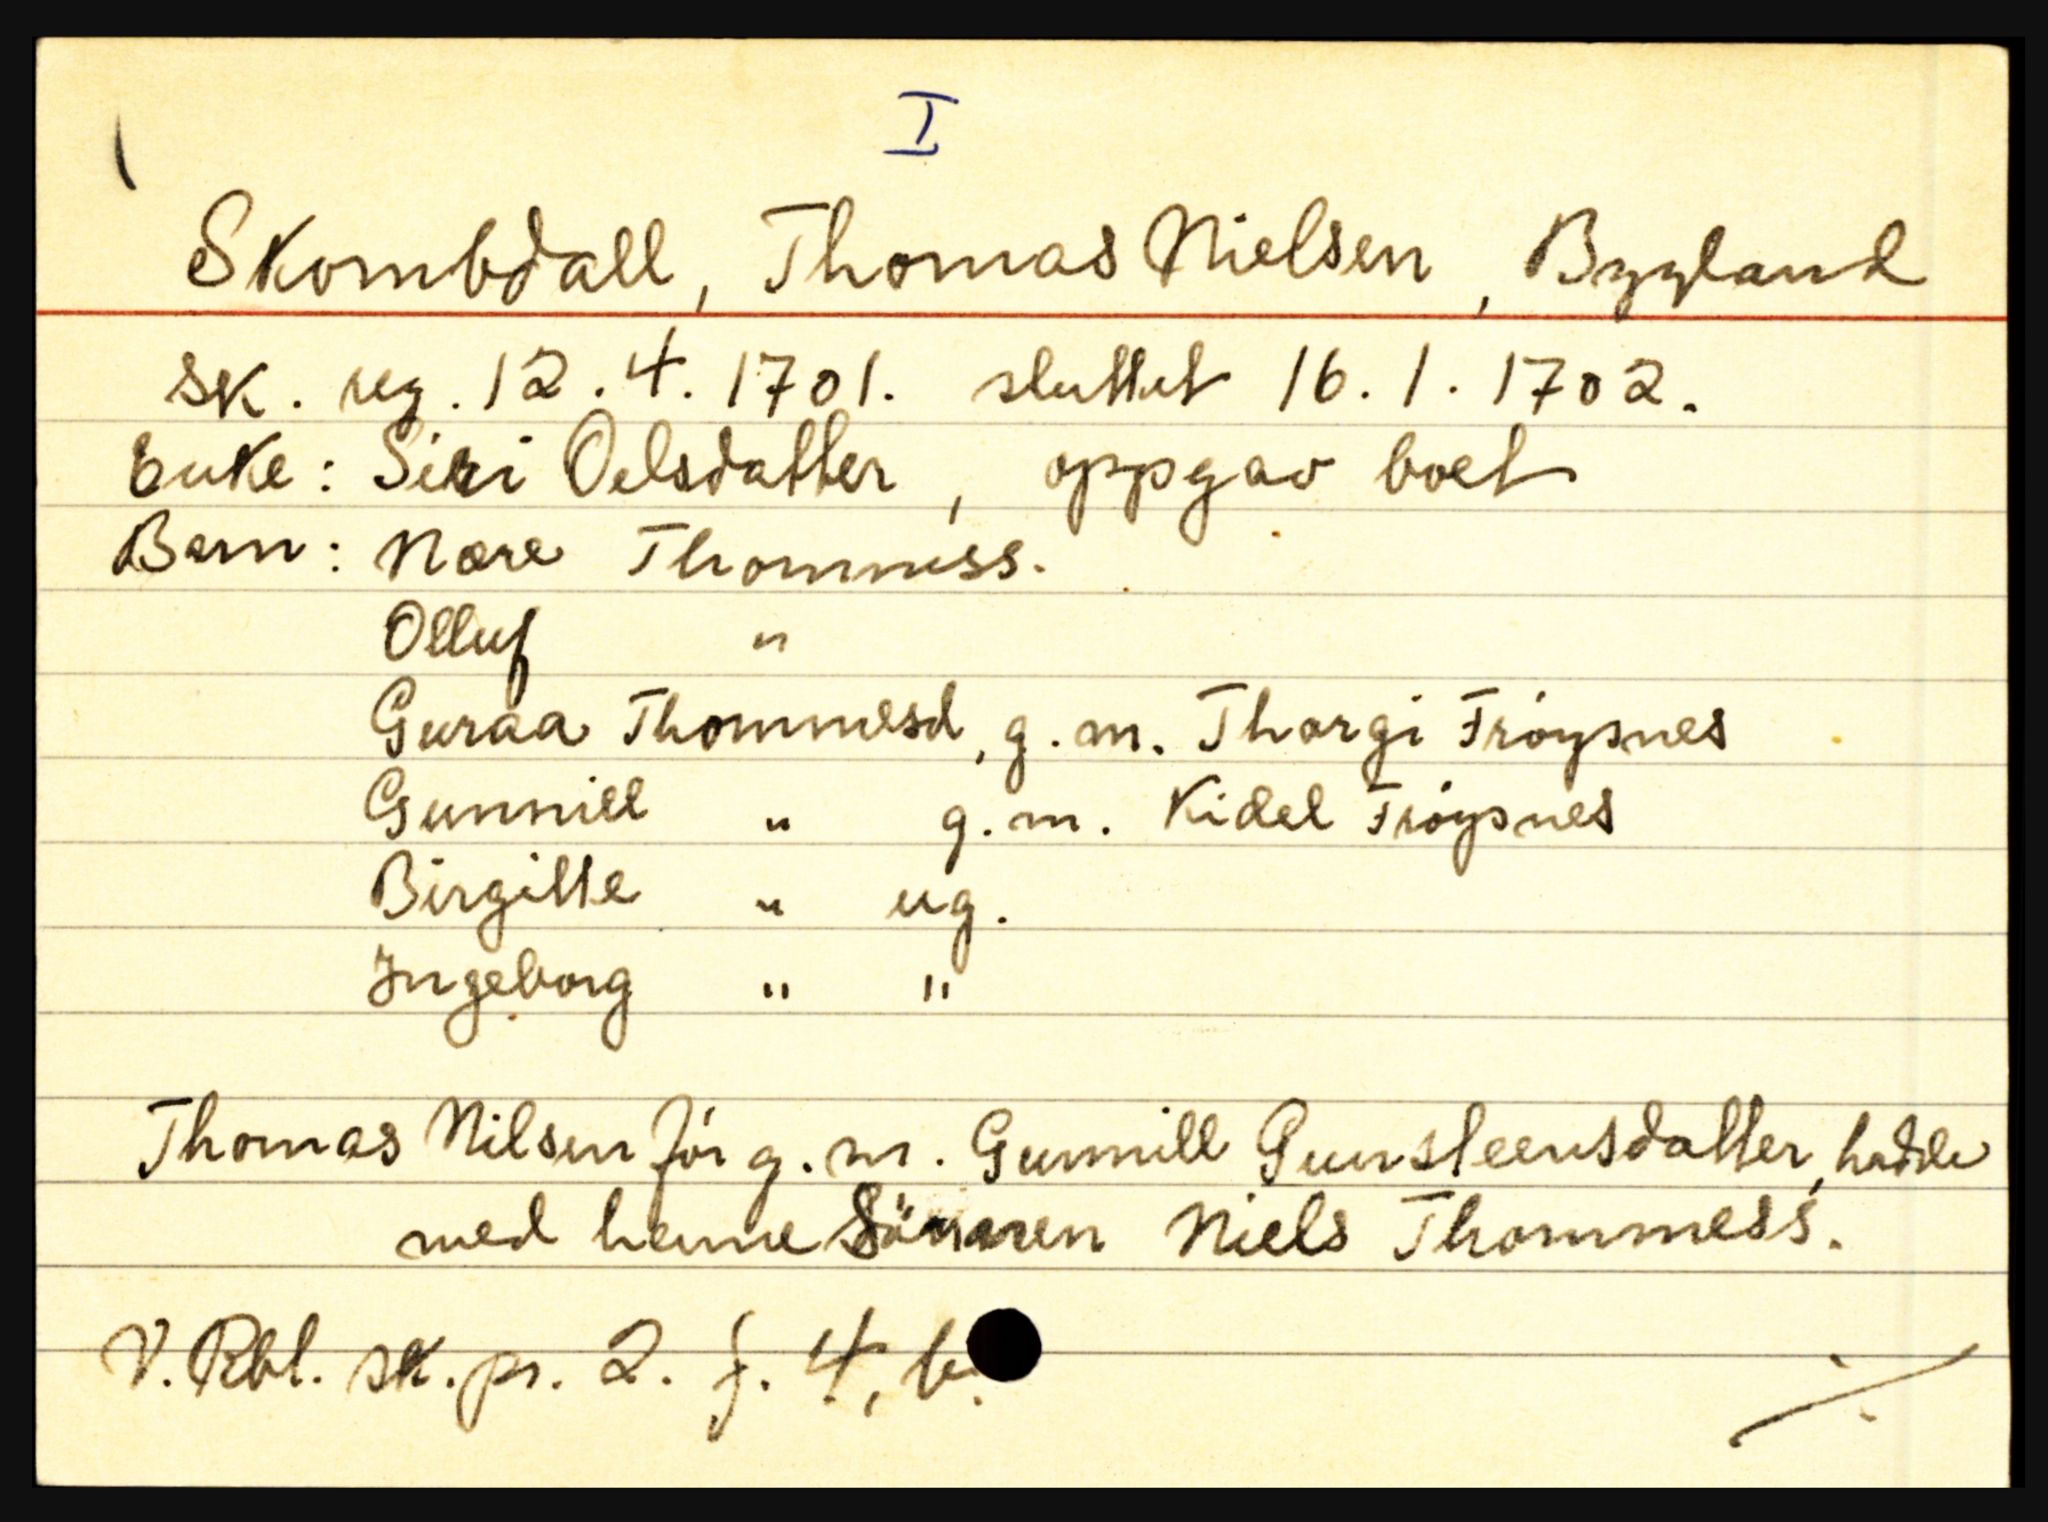 I
Skombdall, Thomas Nielsen, Bygland
sk. reg. 12.4.1701. sluttet 16.1.1702.
Enke: Siri Oelsdatter, oppgav boet
Barn: Nore Thommess.
Olluf "
Guraa Thommesd, g.m. Thorgi Frøysnes
Gunnill " g.m. Kidel Frøysnes
Birgitte " ug.
Ingeborg " "
Thomas Nilsen før g.m. Gunnill Gunsteensdatter, hadde
med henne Niels Thommess.
V.Rbl. sk.pr. 2. f. 4, b.